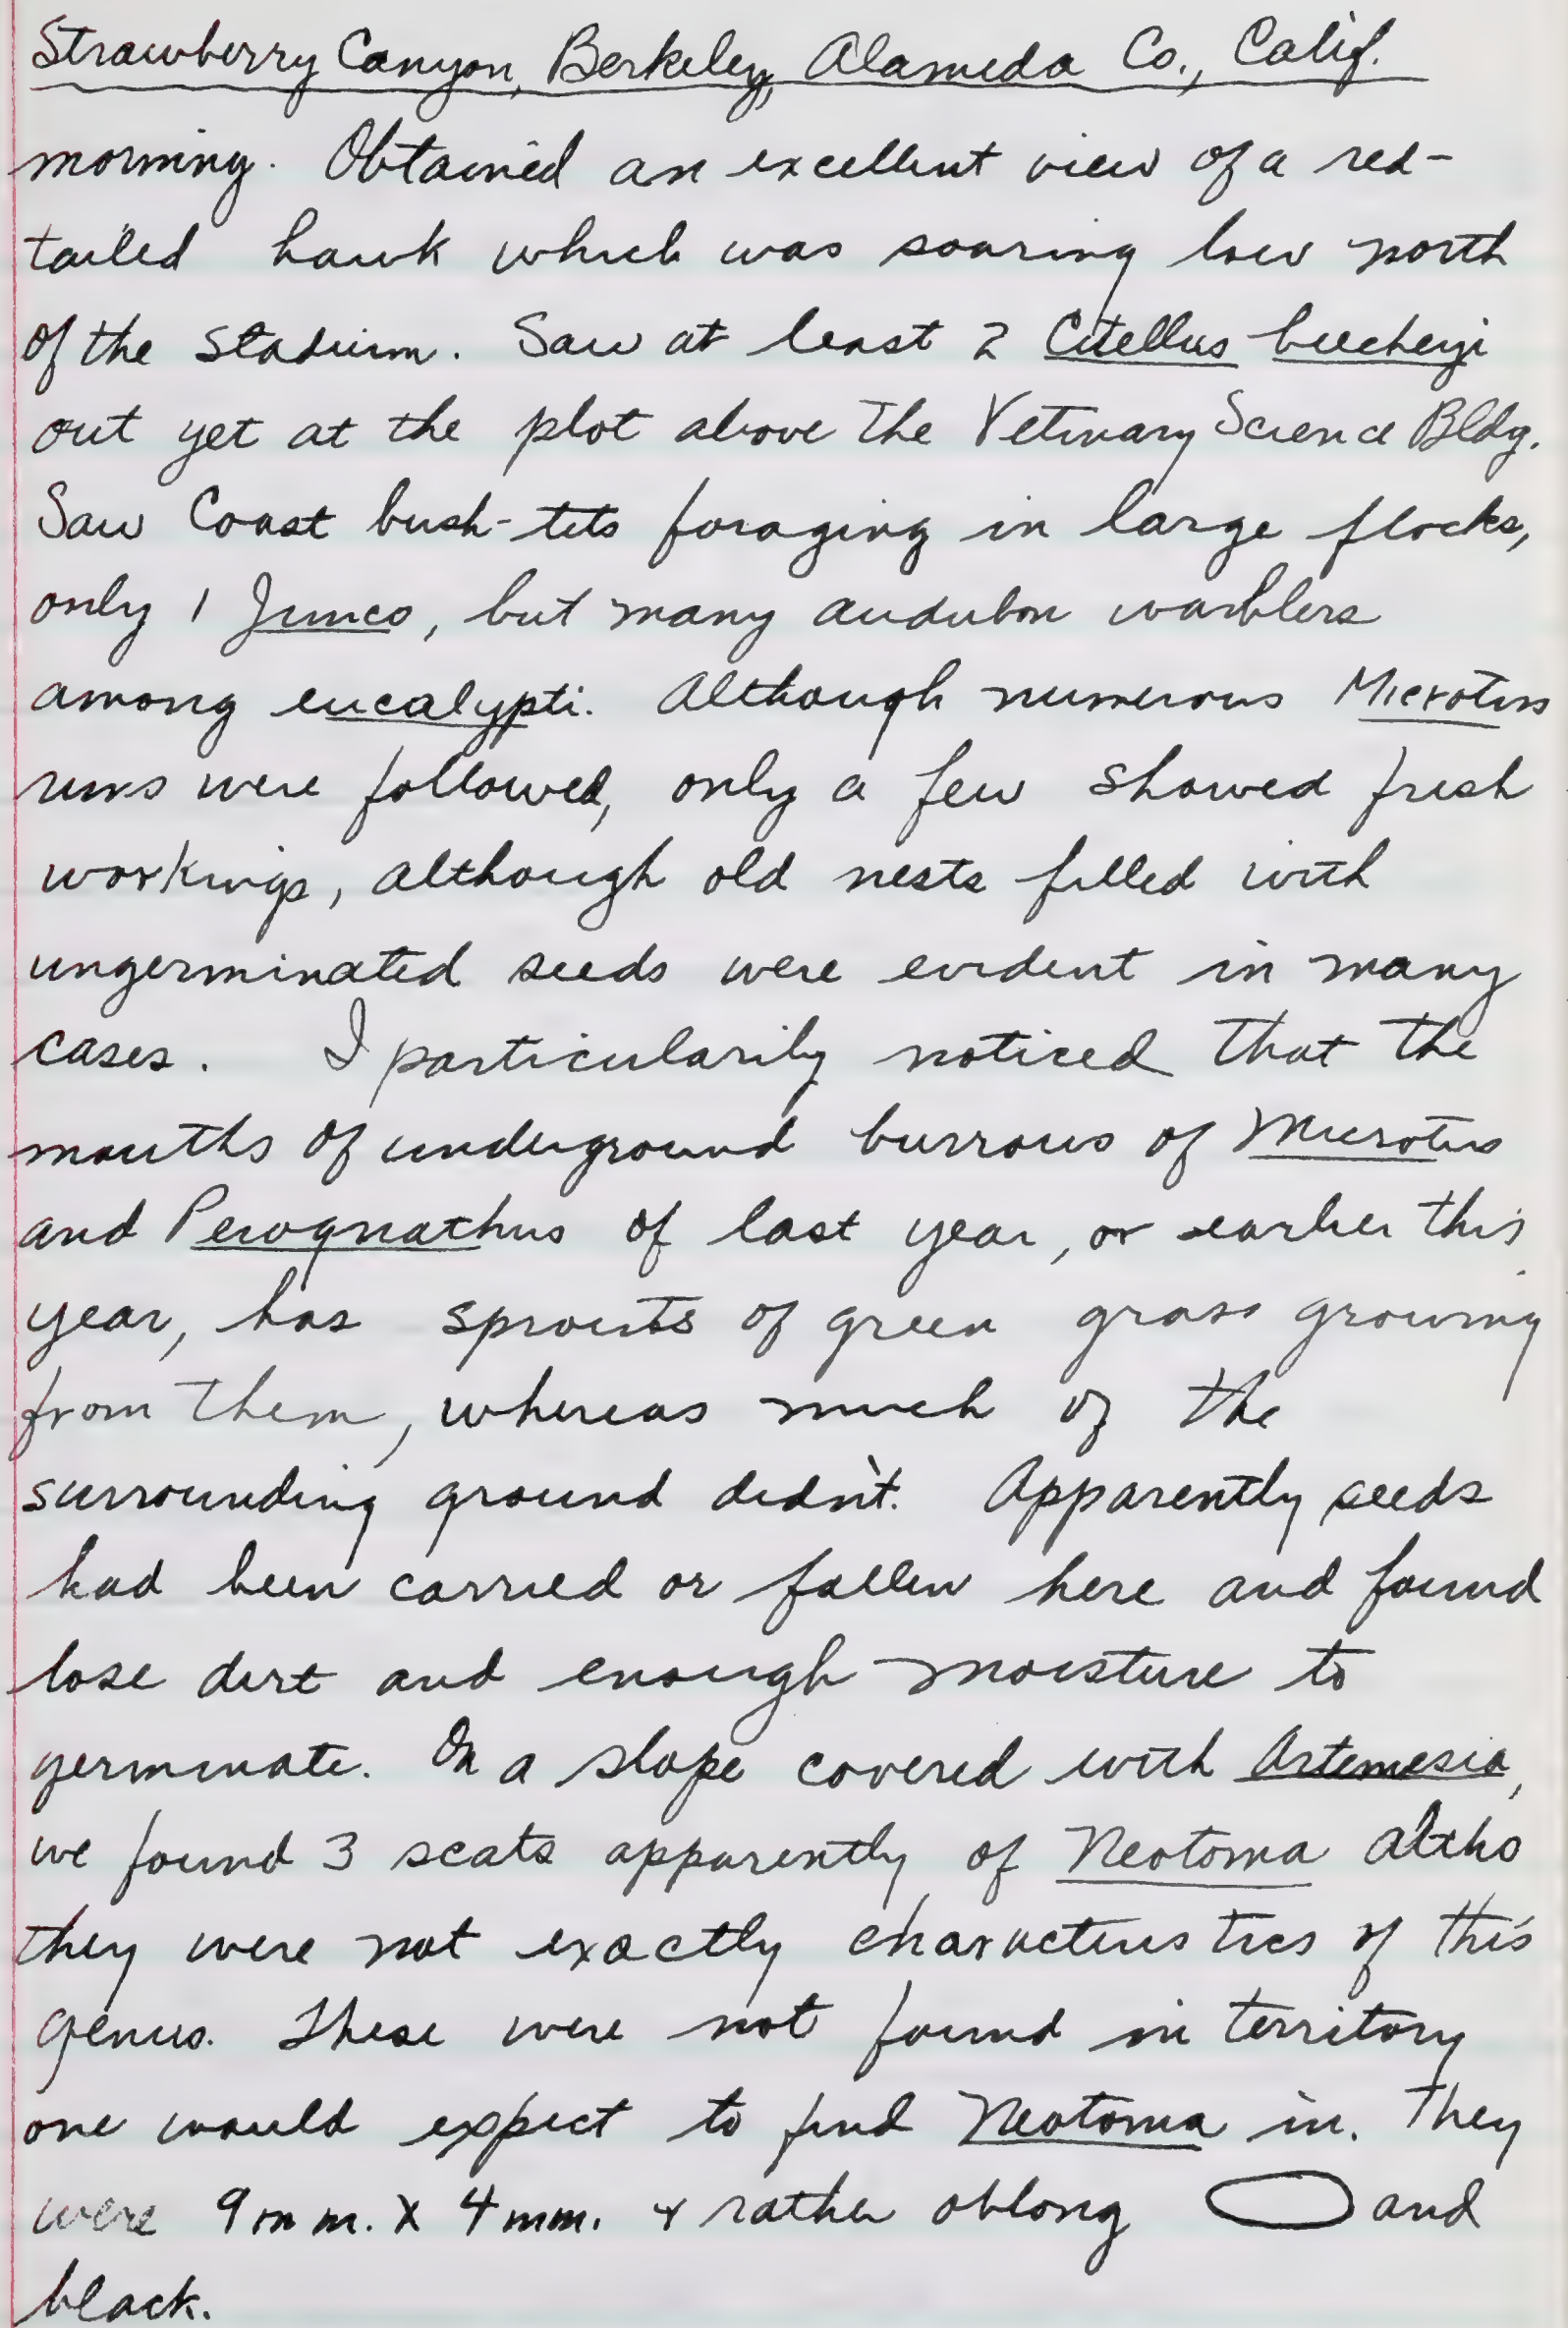 Strawberry Canyon, Berkeley, Alameda Co., Calif.
morning. Obtained an excellent view of a red-
tailed hawk which was soaring low north
of the stadium. Saw at least 2 Citellus beecheyi
out yet at the plot above the Vetinary Science Bldg.
Saw Coast bush-tits foraging in large flocks,
only 1 Junco, but many audubon warblers
among eucalypti. Although numerous Microtus
runs were followed, only a few showed fresh
workings, although old nests filled with
ungerminated seeds were evident in many
cases. I particularily noticed that the
mouths of underground burrows of Microtus
and Perognathus of last year, or earlier this
year, has sprouts of green grass growing
from them, whereas much of the
surrounding ground didn't. Apparently seeds
had been carried or fallen here and found
lose dirt and enough moisture to
germinate. On a slope covered with Artemesia,
we found 3 scats apparently of Neotoma altho
they were not exactly characteristics of this
genus. These were not found in territory
one would expect to find Neotoma in. They
were 9mm. X 4mm. + rather oblong and
black.